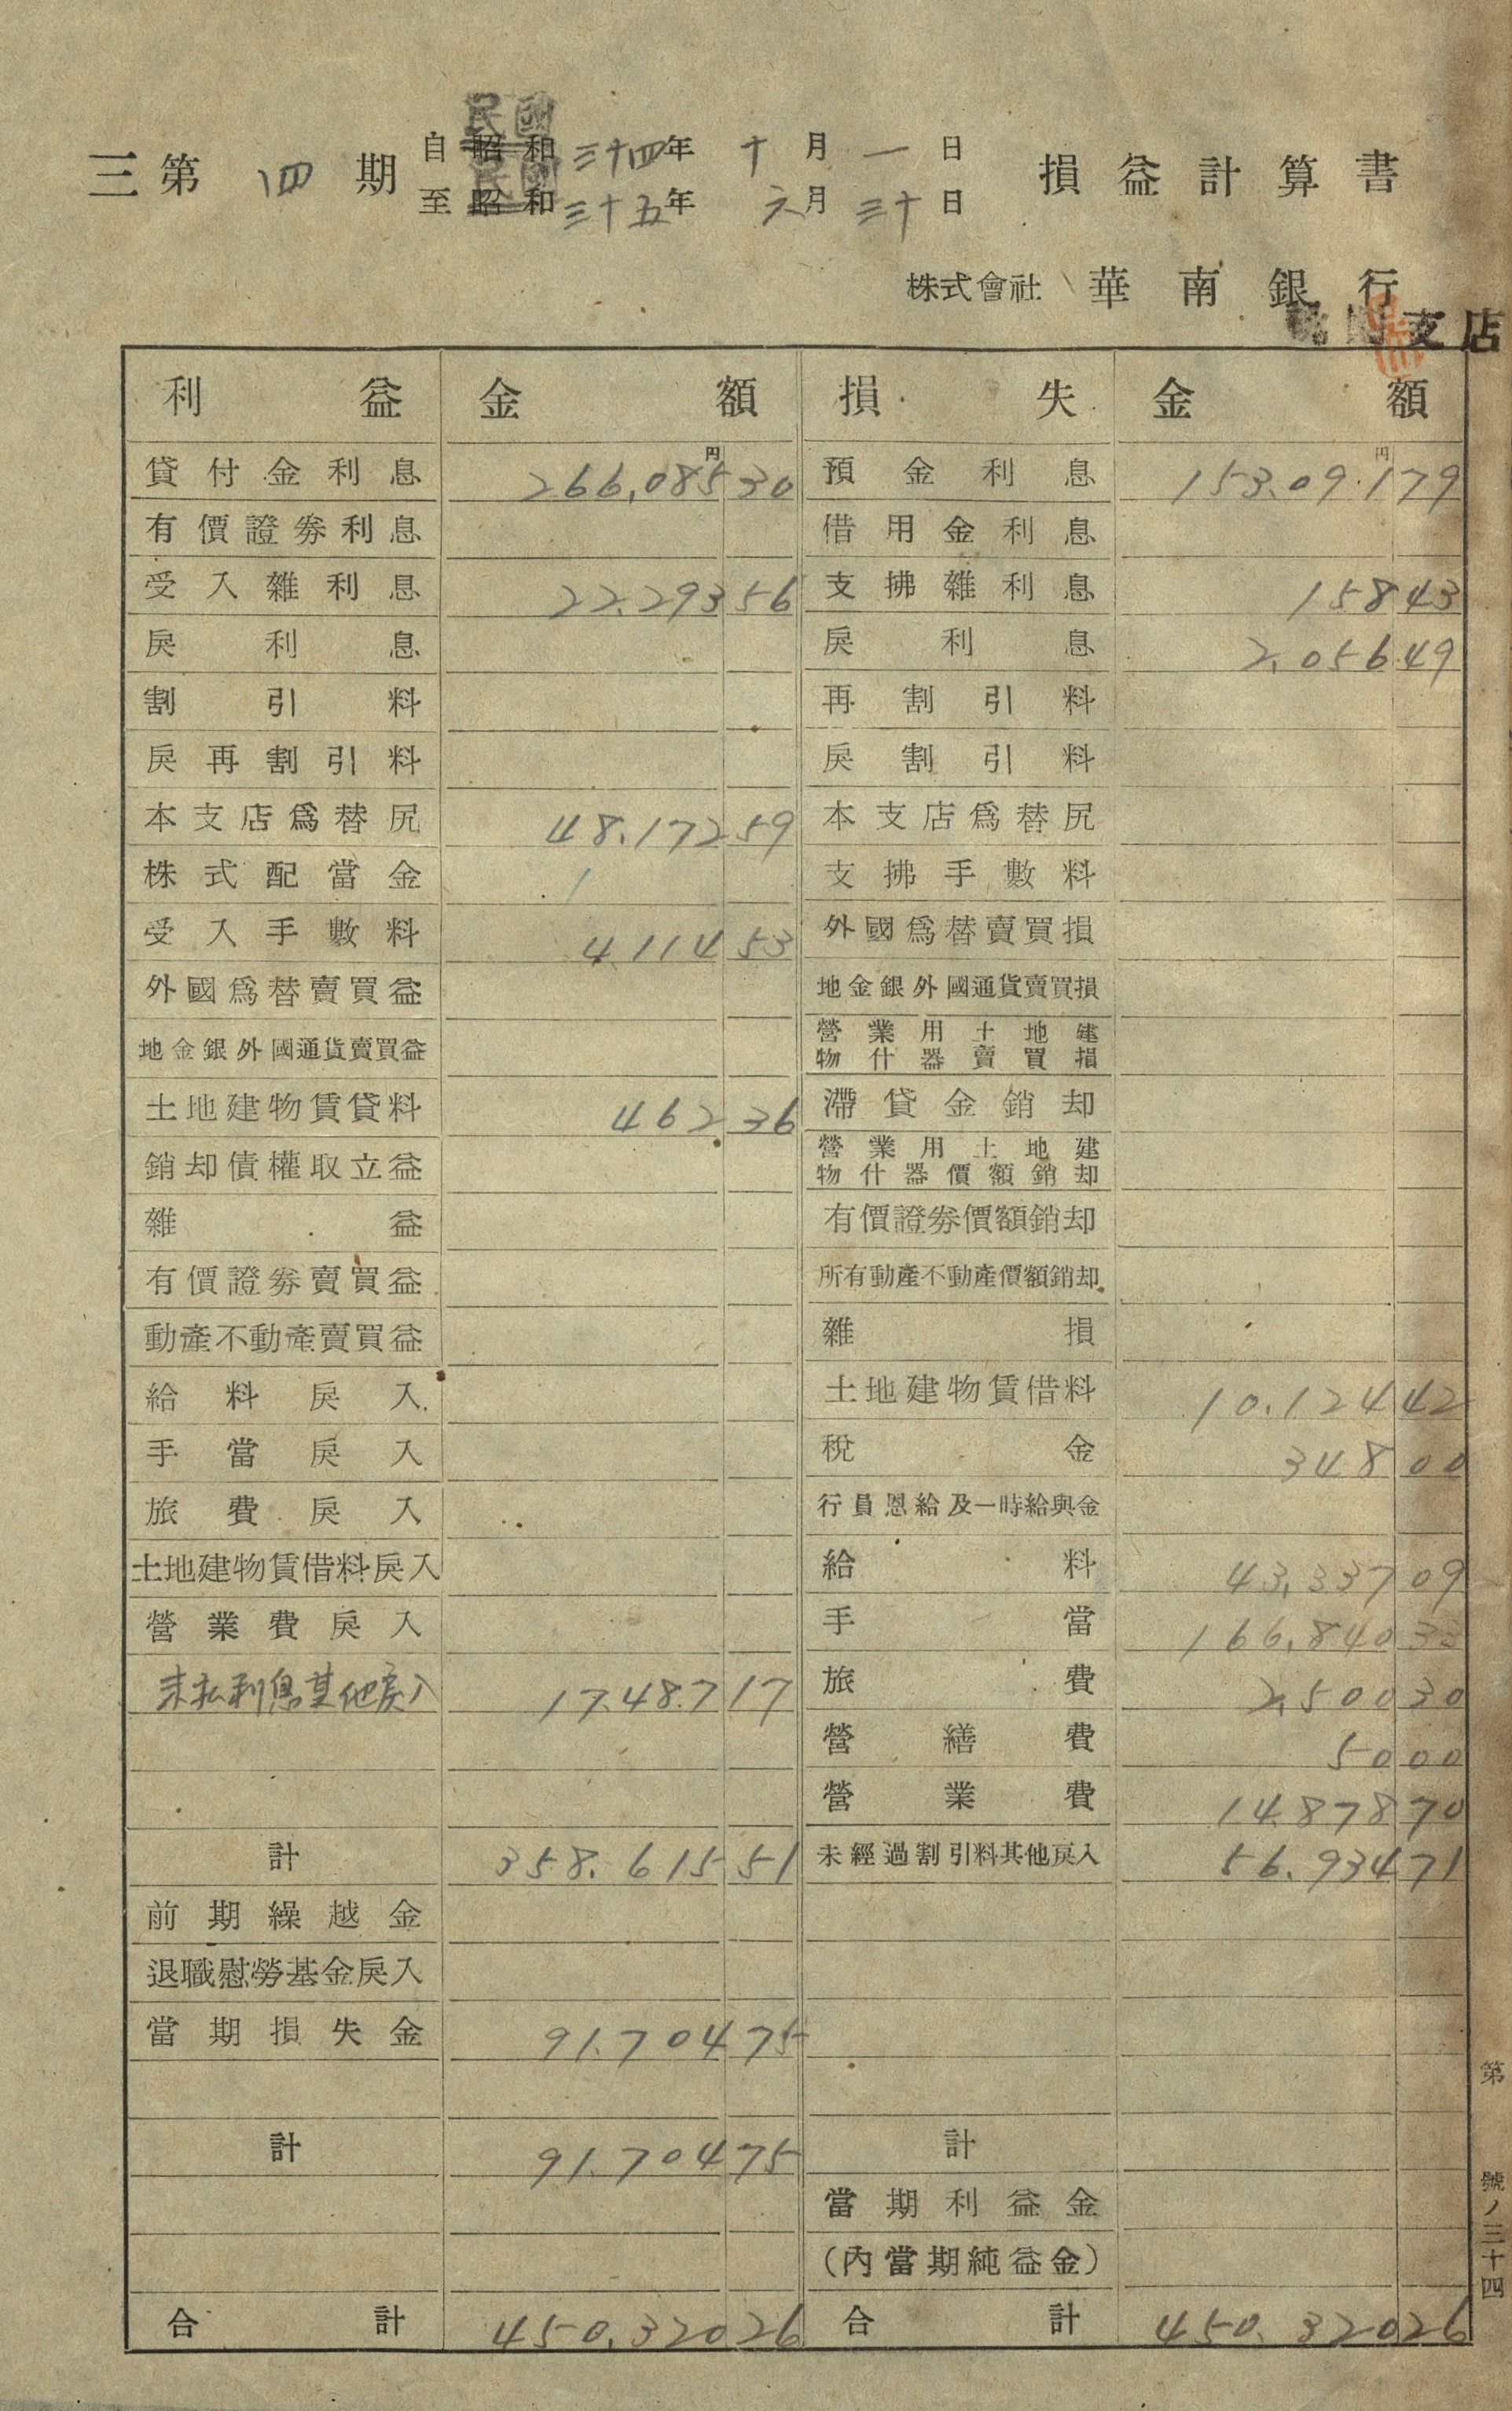 三 第 四 期 自 昭和 民國 三十四年 十月 一日 損益計算書
至 昭和 民國 三十五年 六月 三十日
株式會社 華南銀行
支店
利益 金額 損失 金額
貸付金利息 266,085 円 30 預金利息 153.091 円 79
有價證券利息 借用金利息
受入雜利息 22.293 56 支拂雜利息 158 43
戾利息 戾利息 2,056 49
割引料 再割引料
戾再割引料 戾割引料
本支店爲替尻 48.172 59 本支店爲替尻
株式配當金 支拂手數料
受入手數料 4.114 53 外國爲替賣買損
外國爲替賣買益 地金銀外國通貨賣買損
地金銀外國通貨賣買益 營業用土地建物什器賣買損
土地建物賃貸料 462 36 滯貸金銷却
銷却債權取立益 營業用土地建物什器價額銷却
雜益 有價證券價額銷却
有價證券賣買益 所有動產不動產價額銷却
動產不動產賣買益 雜損
給料戾入 土地建物賃借料 10.124 42
手當戾入 稅金 348 00
旅費戾入 行員恩給及一時給與金
土地建物賃借料戾入 給料 43,337 09
營業費戾入 手當 166,840 33
未払利息其他戾入 17.487 17 旅費 2,500 30
營繕費 50 00
營業費 14.878 70
計 358.615 51 未經過割引料其他戾入 56.934 71
前期繰越金
退職慰勞基金戾入
當期損失金 91.704 75
計 91.704 75 計
當期利益金
(內當期純益金)
合計 450.320 26 合計 450.320 26
第 號ノ三十四